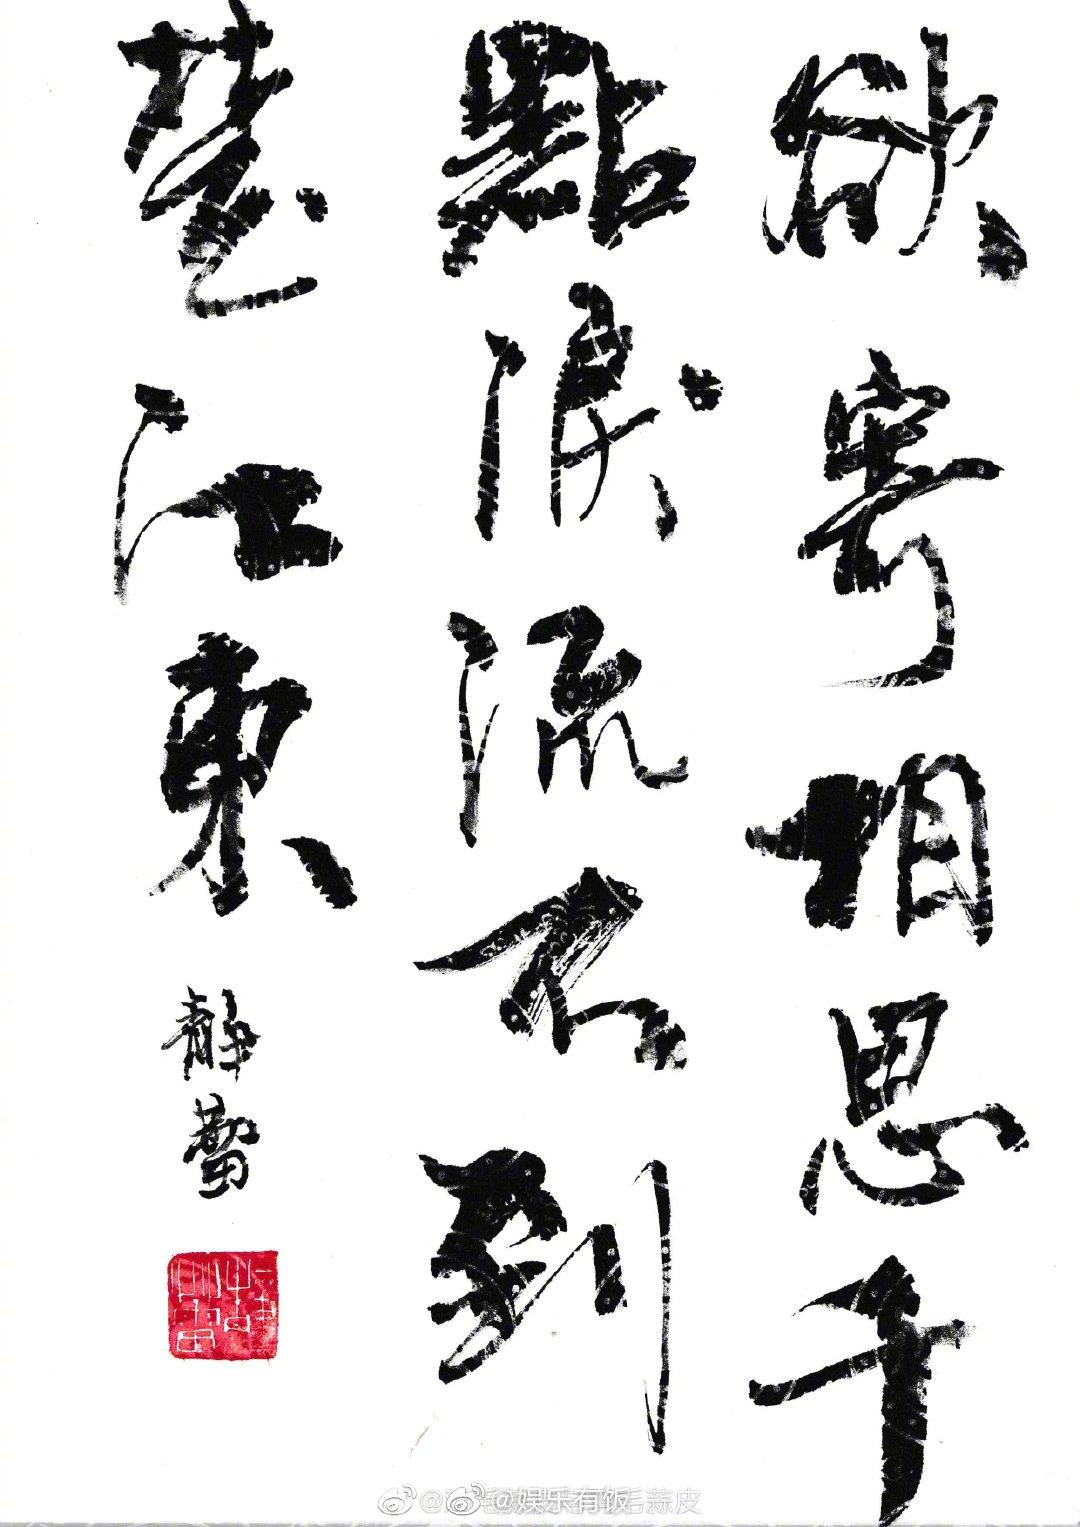 欲寄相思千
點淚流不到
楚江東
静蕾
@娱乐有饭